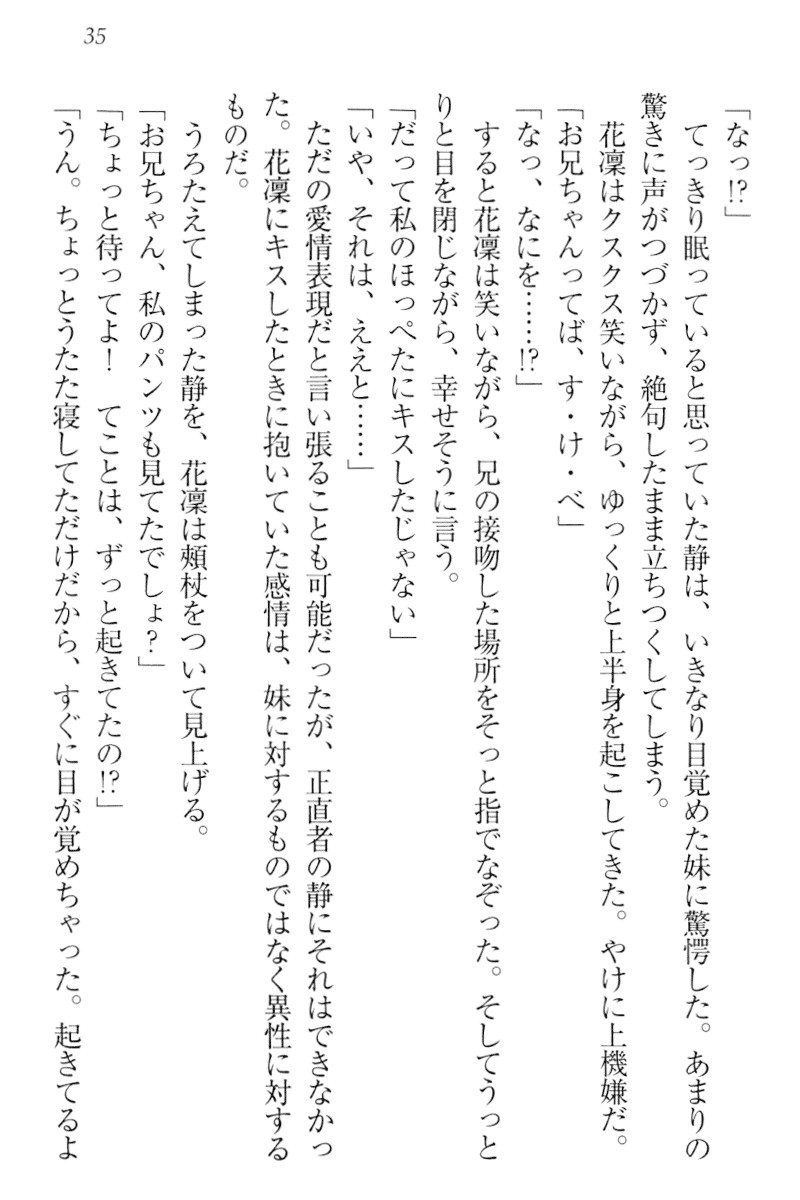 35
「なっ!?」
　てっきり眠っていると思っていた静は、いきなり目覚めた妹に驚愕した。あまりの
驚きに声がつづかず、絶句したまま立ちつくしてしまう。
　花凜はクスクス笑いながら、ゆっくりと上半身を起こしてきた。やけに上機嫌だ。
「お兄ちゃんってば、す・け・べ」
「なっ、なにを……!?」
　すると花凜は笑いながら、兄の接吻した場所をそっと指でなぞった。そしてうっと
りと目を閉じながら、幸せそうに言う。
「だって私のほっぺたにキスしたじゃない」
「いや、それは、ええと……」
　ただの愛情表現だと言い張ることも可能だったが、正直者の静にそれはできなかっ
た。花凜にキスしたときに抱いていた感情は、妹に対するものではなく異性に対する
ものだ。
　うろたえてしまった静を、花凜は頰杖をついて見上げる。
「お兄ちゃん、私のパンツも見てたでしょ？」
「ちょっと待ってよ！　てことは、ずっと起きてたの!?」
「うん。ちょっとうたた寝してただけだから、すぐに目が覚めちゃった。起きてるよ